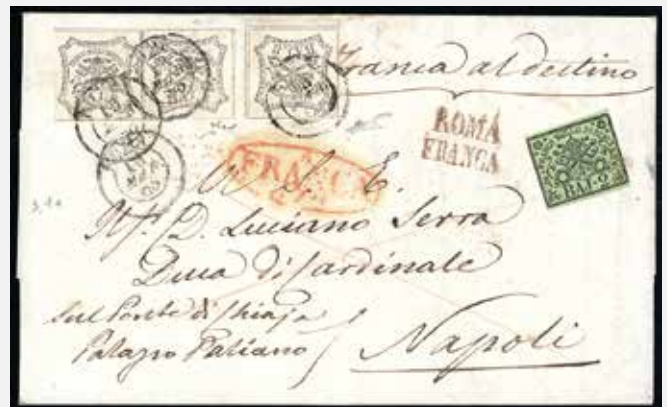 Franca al destino
ROMA
FRANCA
FRANCA
BAJ. 2
A S. E.
D. Luciano Serra
Duca di Cardinale
Sul Ponte di Chiaja
Palazzo
Napoli